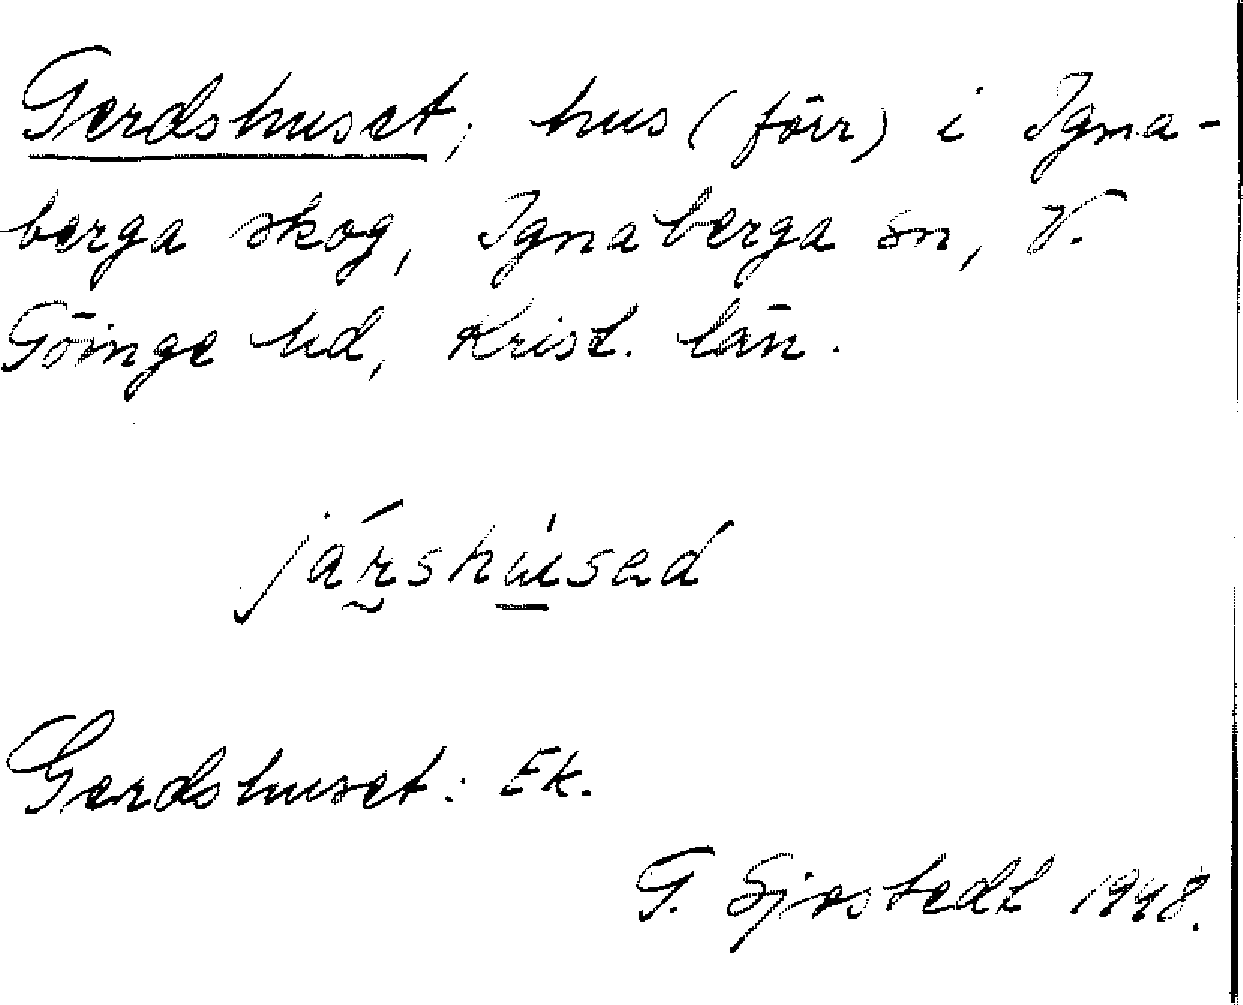 Gerdshuset, hus (förr) i Igna-
berga skog, Ignaberga sn, V.
Göinge hd, Krist. län.
járshúsad
Gerdshuset: Ek.
G. Sjöstedt 1948.